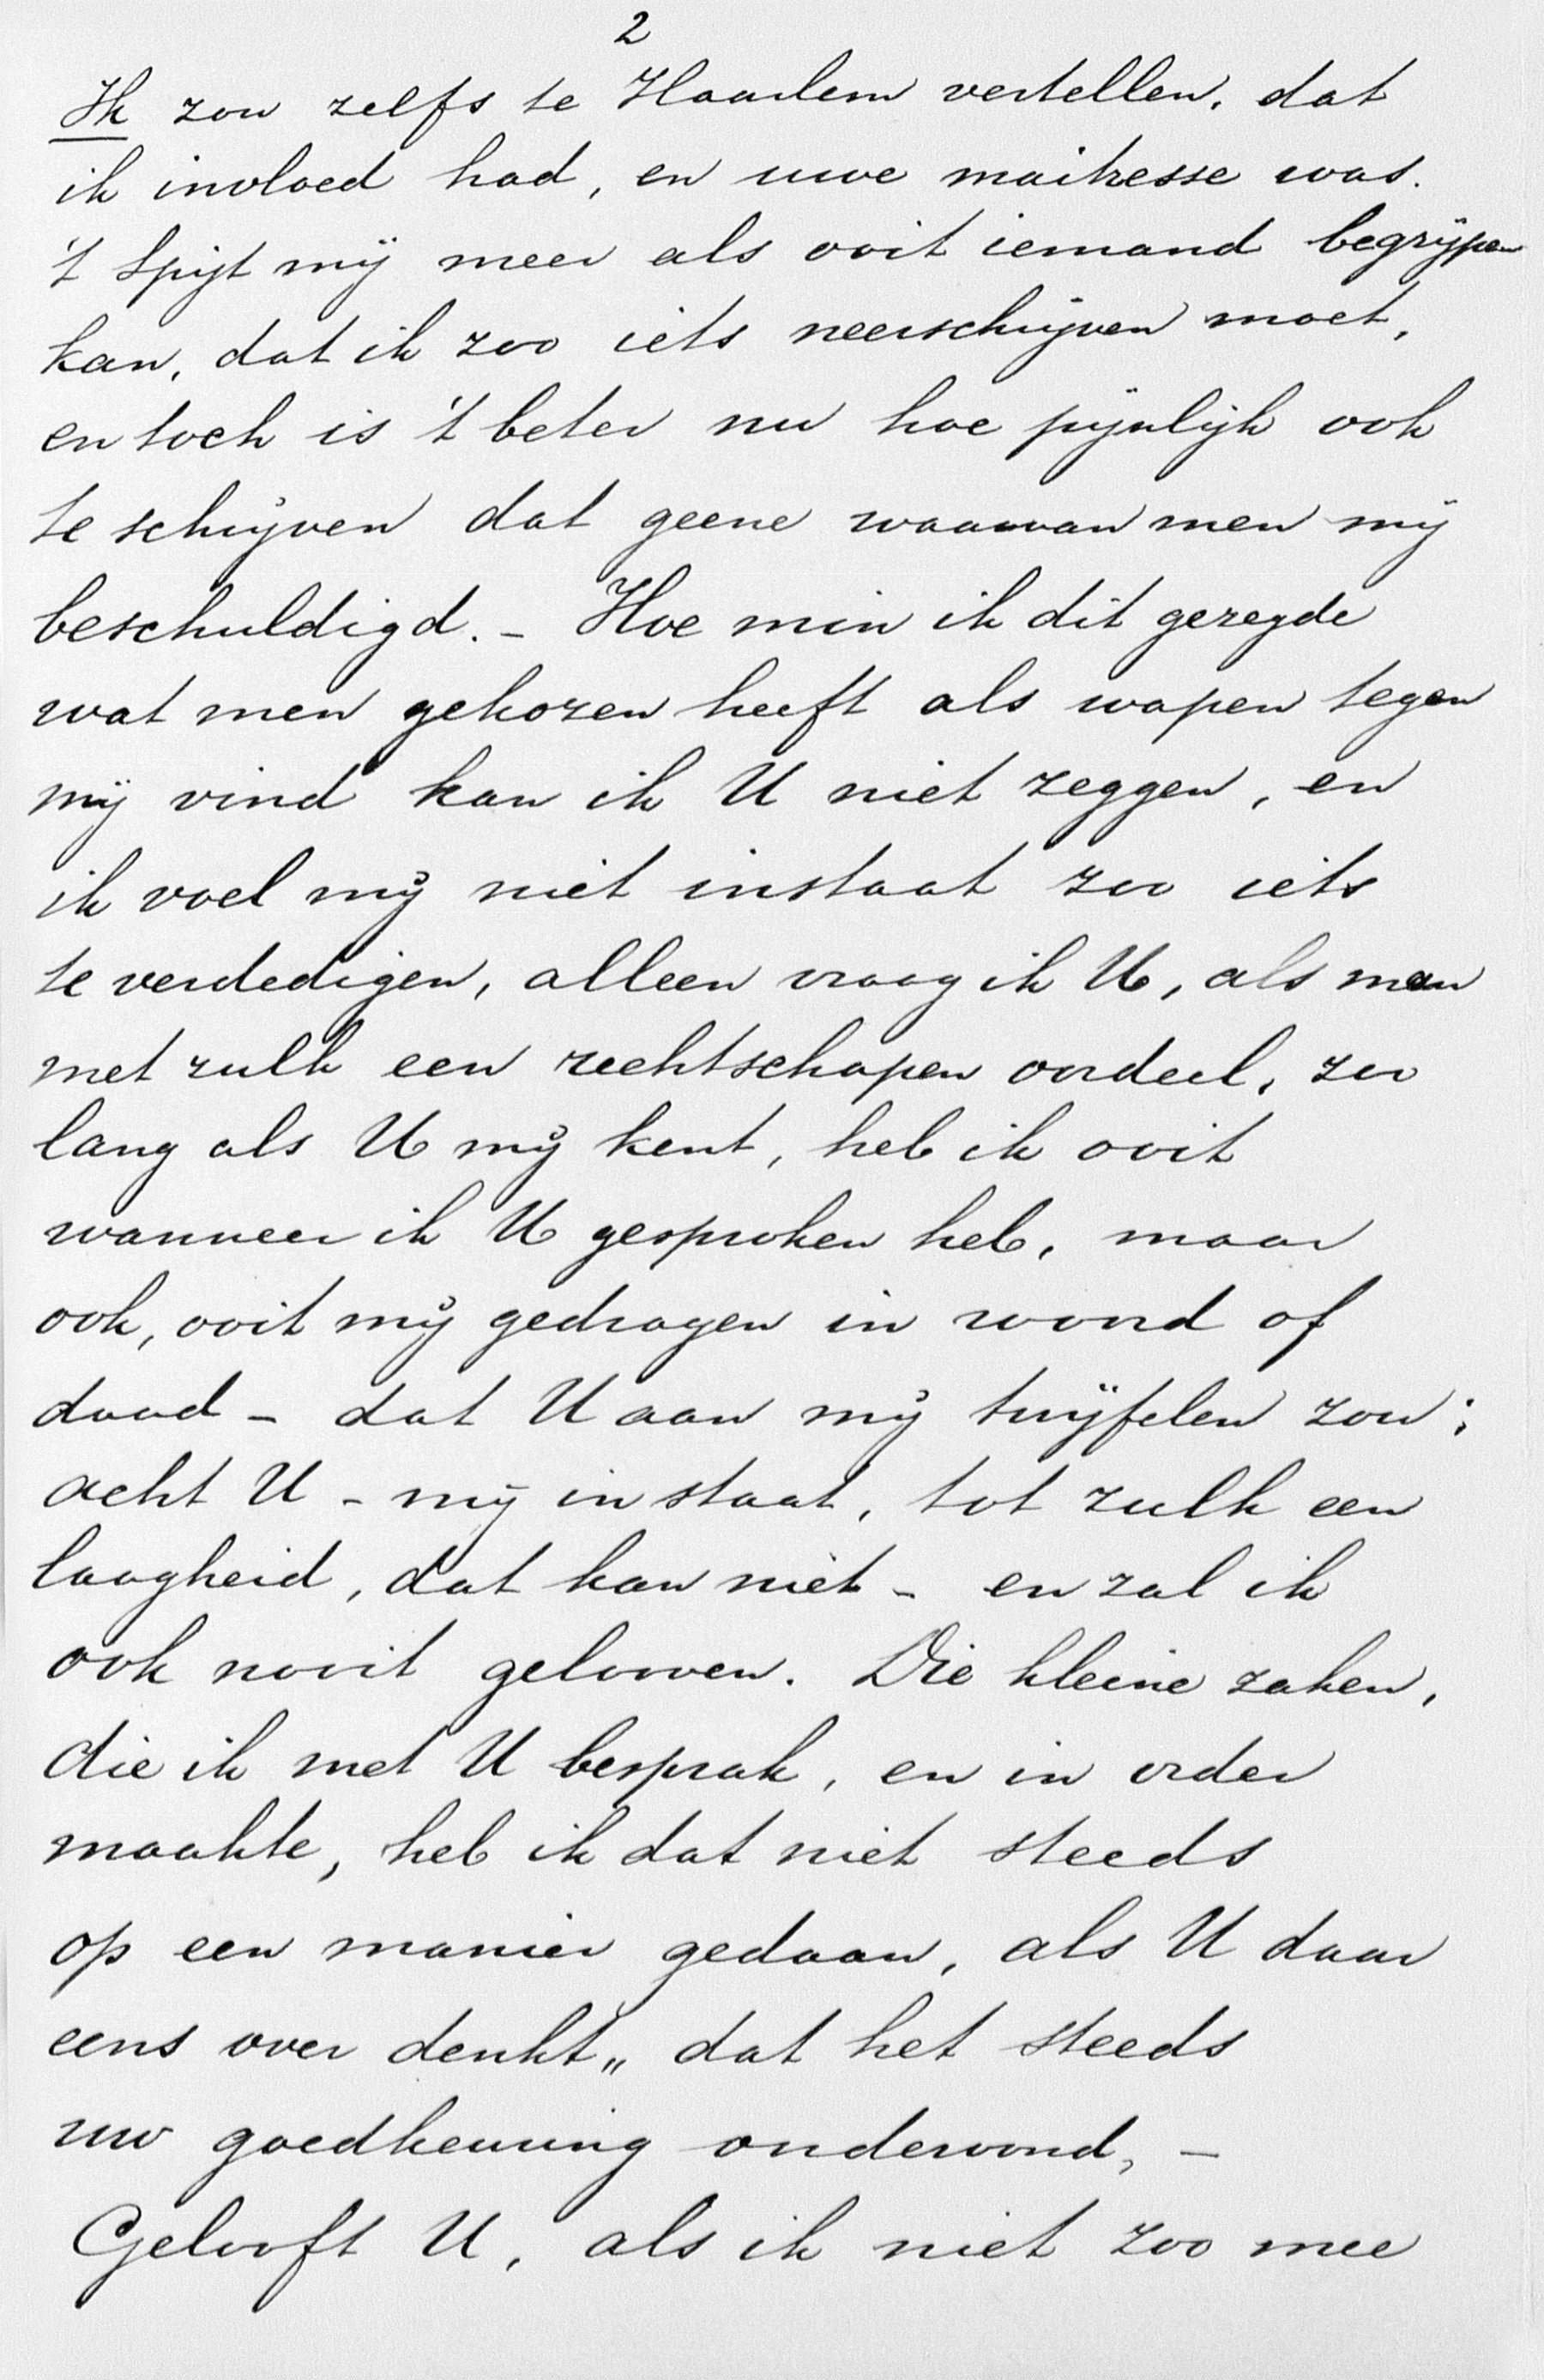 2
Ik zou zelfs te Haarlem vertellen, dat
ik invloed had, en uwe maitresse was.
't Spijt mij meer als ooit iemand begrijpen
kan, dat ik zoo iets neerschrijven moet,
en toch is 't beter nu hoe pijnlijk ook
te schrijven dat geene waarvan men mij
beschuldigd. – Hoe min ik dit gezegde
wat men gekozen heeft als wapen tegen
mij vind kan ik U niet zeggen, en
ik voel mij niet instaat zoo iets
te verdedigen, alleen vraag ik U, als man
met zulk een rechtschapen oordeel, zoo
lang als U mij kent, heb ik ooit
wanneer ik U gesproken heb, maar
ook, ooit mij gedragen in woord of
daad – dat U aan mij twijfelen zou;
acht U – mij in staat, tot zulk een
laagheid, dat kan niet – en zal ik
ook nooit gelooven. Die kleine zaken,
die ik met U besprak, en in order
maakte, heb ik dat niet steeds
op een manier gedaan, als U daar
eens over denkt„ dat het steeds
uw goedkeuring ondervond, –
Gelooft U, als ik niet zoo mee